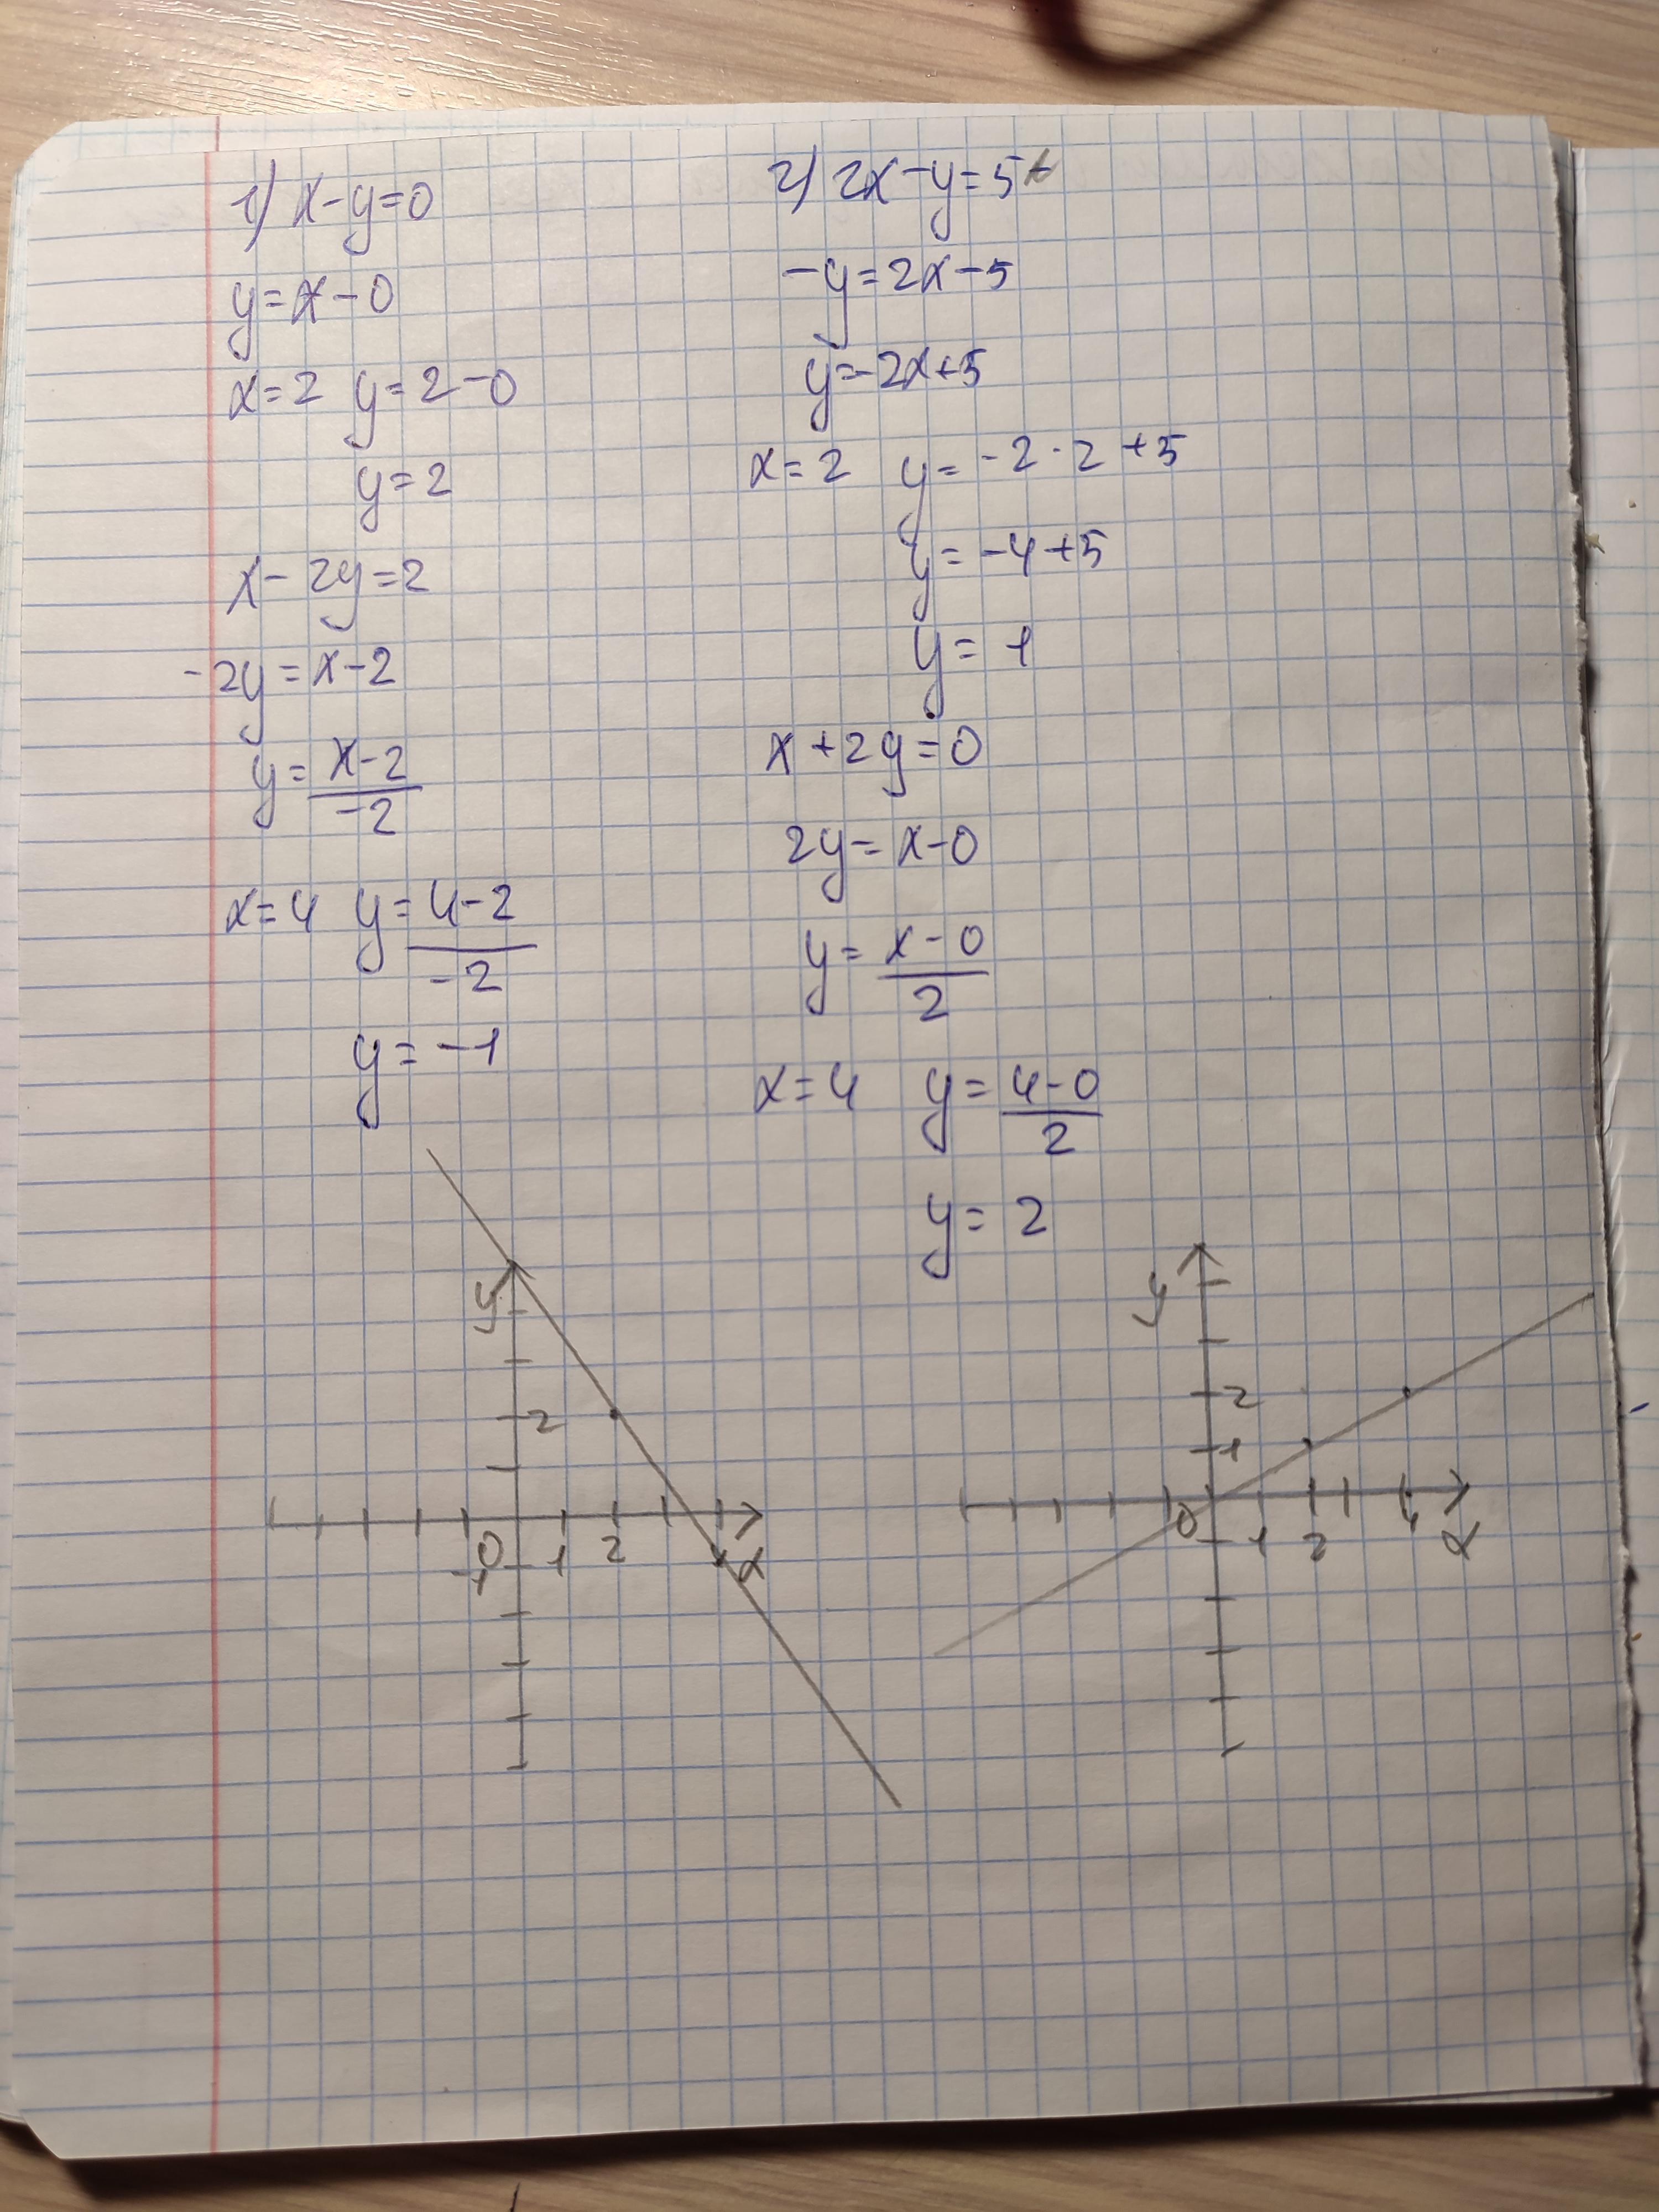 1) x-y=0
y=x-0
x=2 y=2-0
y=2
x-2y=2
-2y=x-2
y=x-2
-2
x=4 y=4-2
-2
y=-1
2) 2x-y=5
-y=2x-5
y=-2x+5
x=2 y=-2·2+5
y=-4+5
y=1
x+2y=0
2y=x-0
y=x-0
2
x=4 y=4-0
2
y=2
y
2
0 1 2 x
-1
y
2
1
0 1 2 4 x